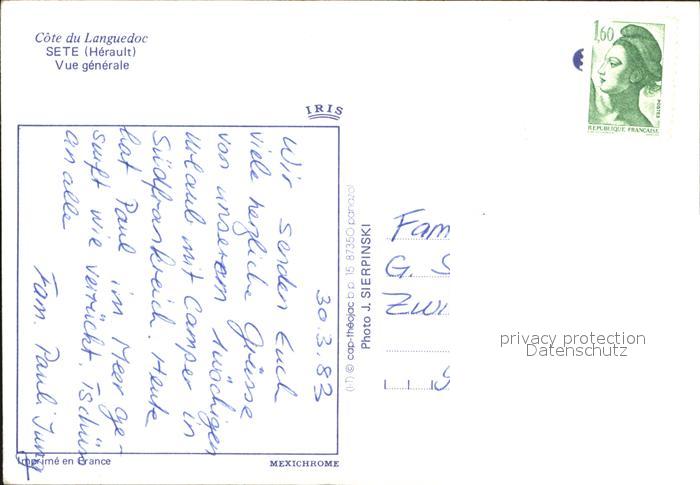 Côte du Languedoc
SETE (Hérault)
Vue générale
IRIS
30.3.83
Wir senden Euch
viele herzliche Grüsse
von unserem 1wöchigen
Urlaub mit Camper in
Südfrankreich. Heute
hat Paul im Meer ge-
surft wie verrückt. Tschüss
an alle
Fam. Pauli Jung
Imprimé en France
MEXICHROME
© cap-théojac b.p. 15 87350 panazol
Photo J. SIERPINSKI
1,60
POSTES
REPUBLIQUE FRANÇAISE
Fam
G. S
Zwi
privacy protection
Datenschutz